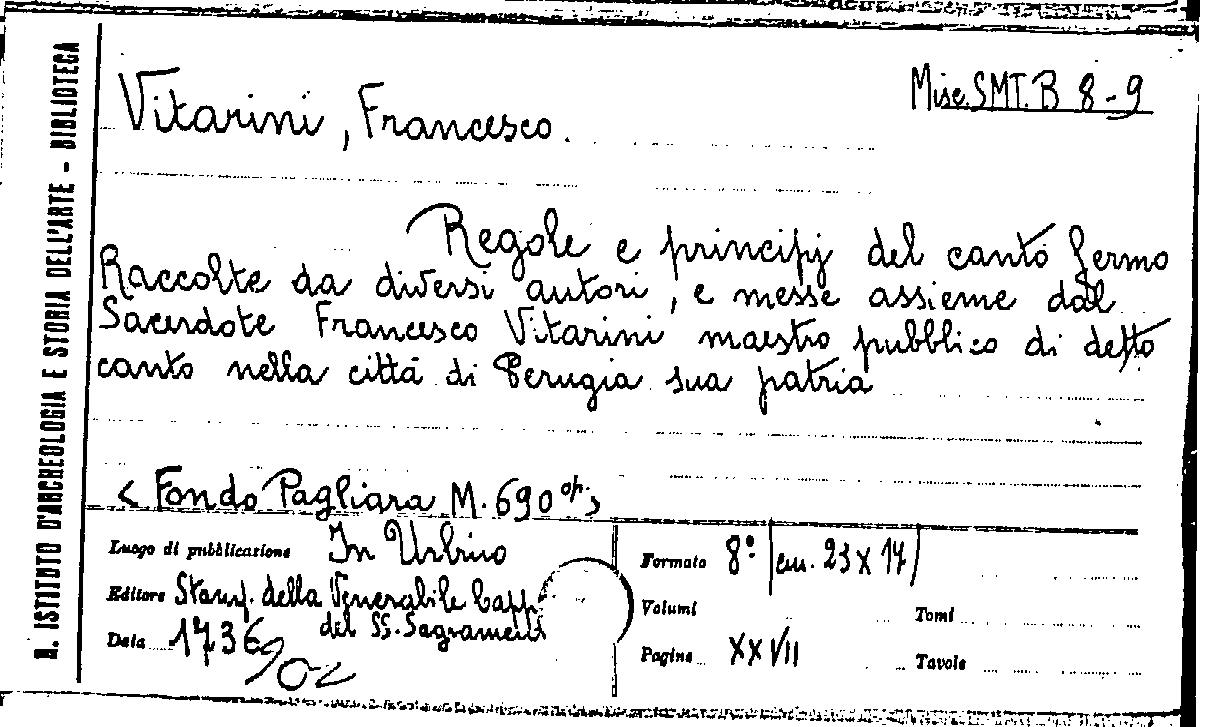 R. ISTITUTO D'ARCHEOLOGIA E STORIA DELL'ARTE - BIBLIOTECA
Vitarini, Francesco.
Misc. SMT. B 8-9
Regole e principij del canto fermo
Raccolte da diversi autori, e messe assieme dal
Sacerdote Francesco Vitarini maestro pubblico di detto
canto nella città di Perugia sua patria
< Fondo Pagliara M. 690 op. >
Luogo di pubblicazione In Urbino
Editore Stamp. della Venerabile Capp.
del SS. Sagramento
Data 1736
Formato 8° | cm. 23 x 17 |
Volumi
Tomi
Pagine XXVII
Tavole